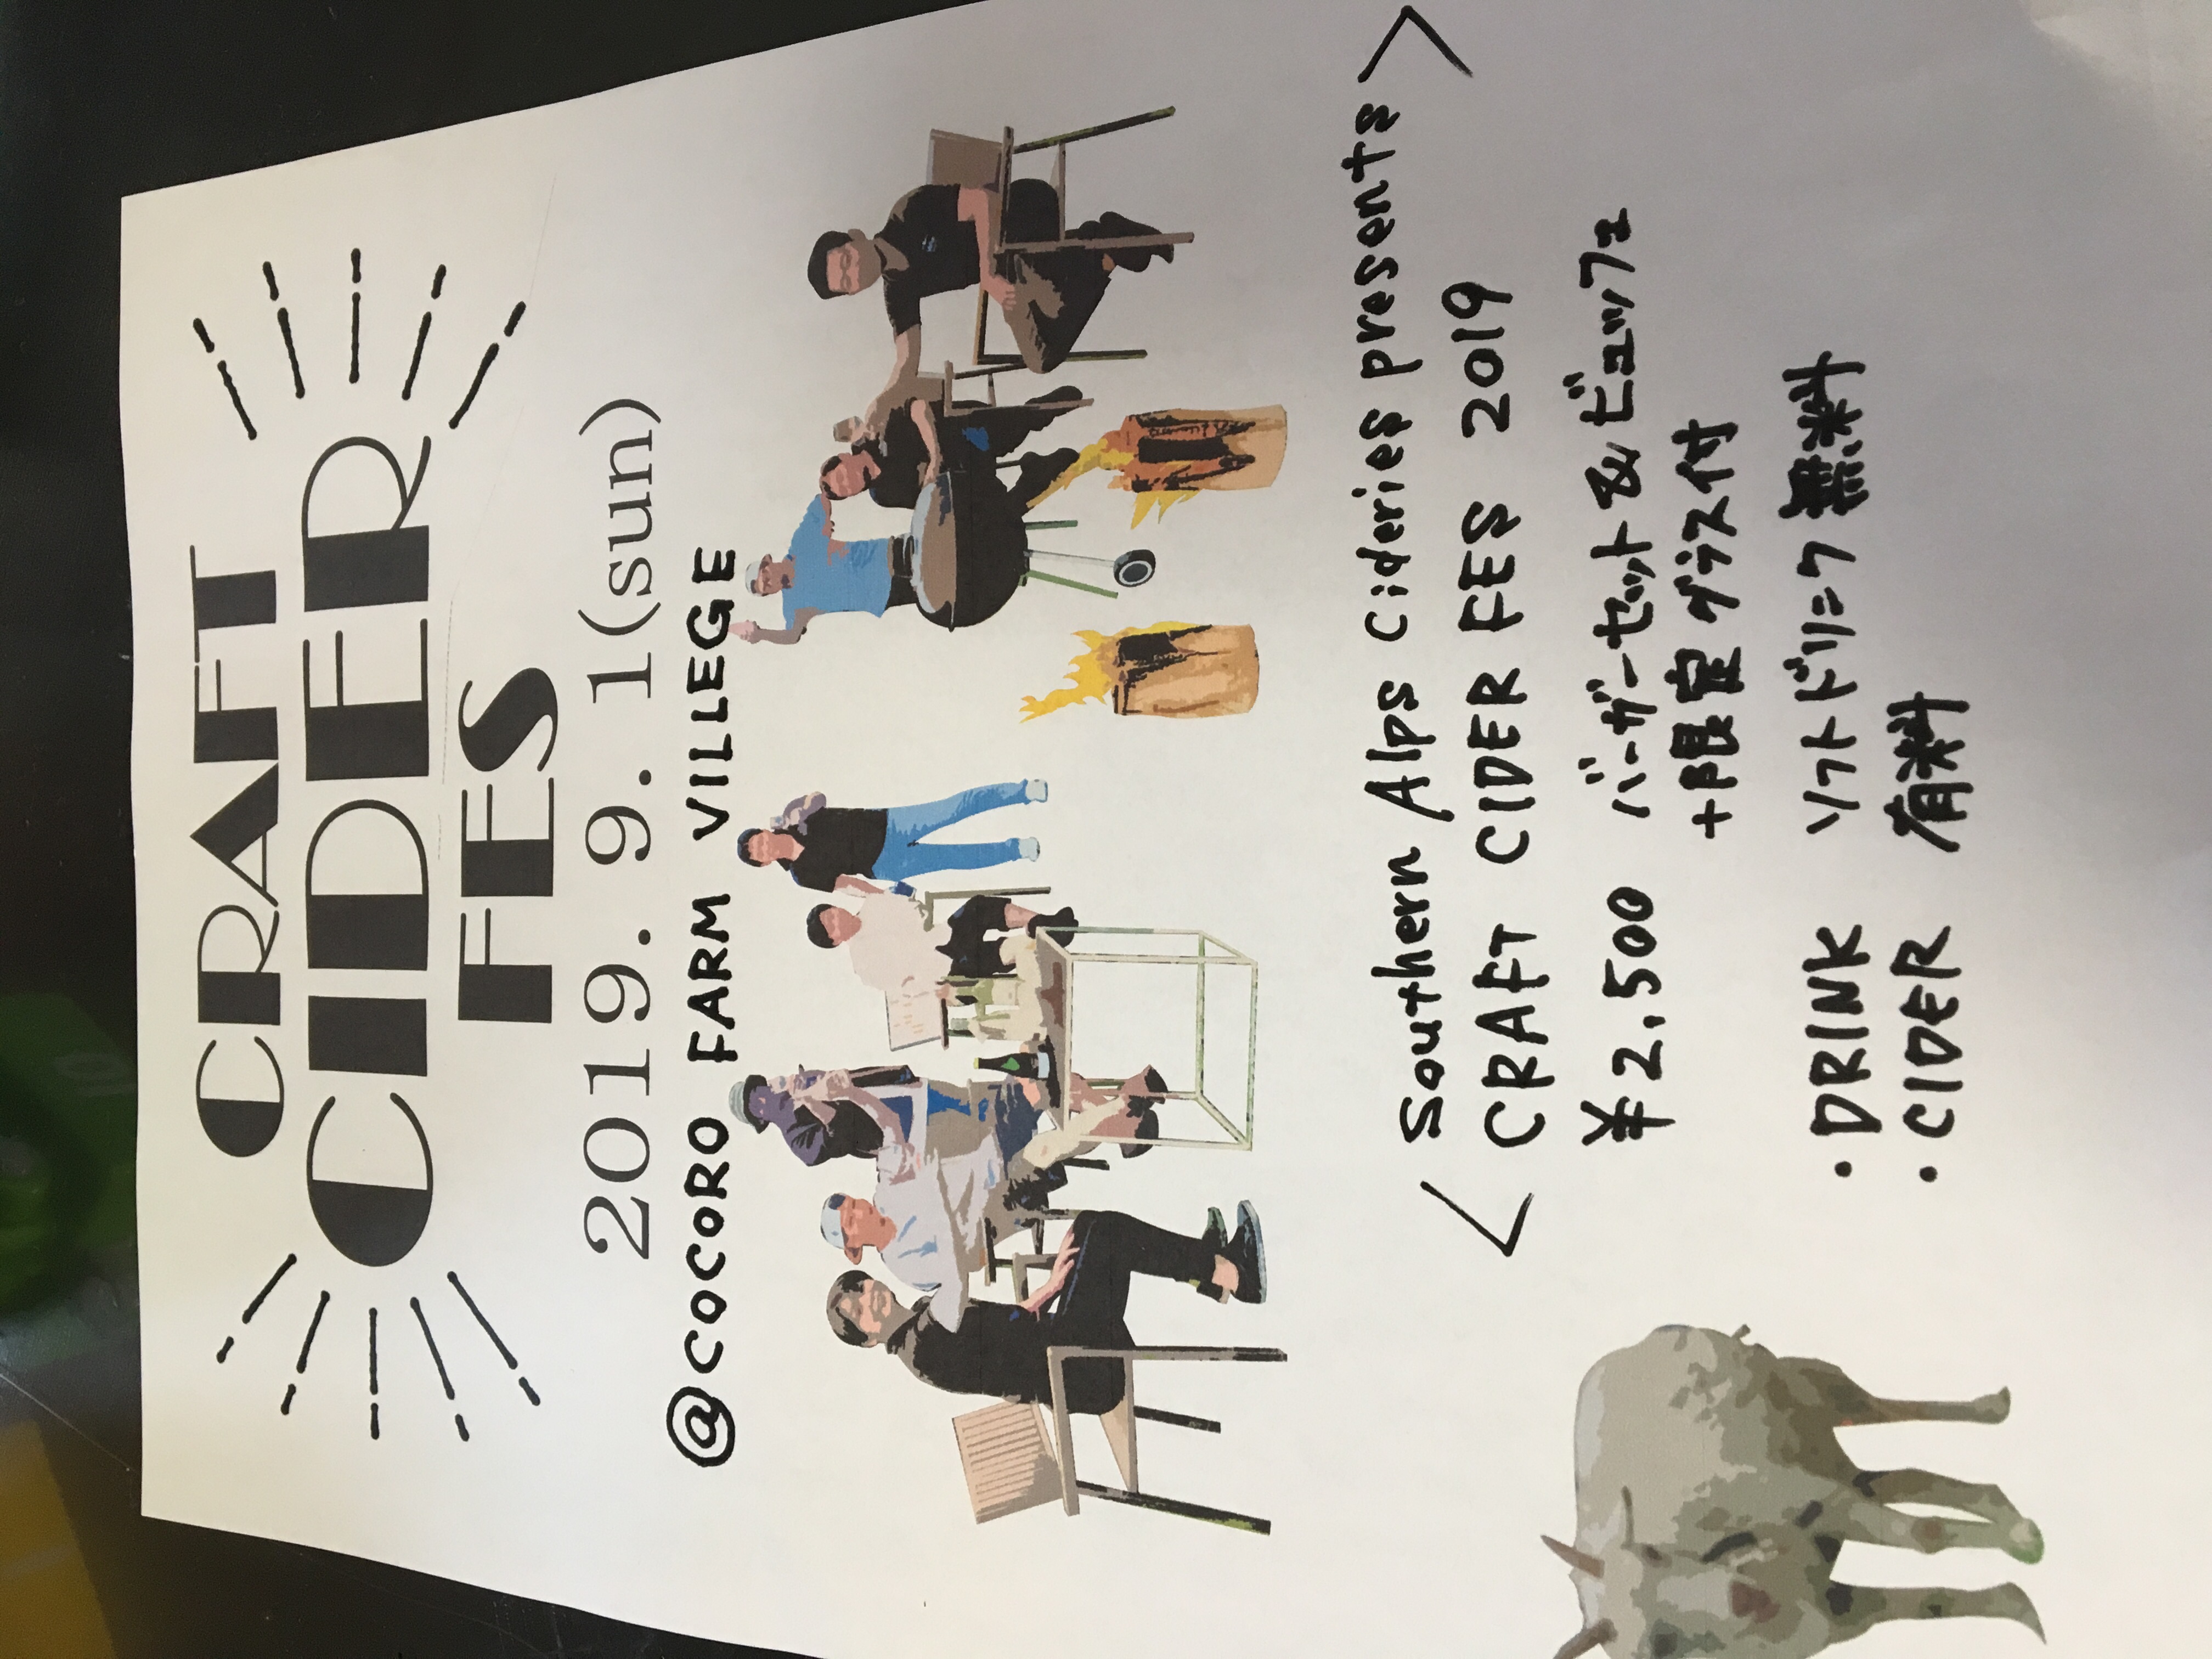 CRAFT
CIDER
FES
2019. 9. 1(sun)
@COCORO FARM VILLEGE
<Southern Alps Cideries presents>
CRAFT CIDER FES 2019
¥2,500 バーガーセット&ビュッフェ
+限定グラス付
・DRINK ソフトドリンク 無料
・CIDER 有料